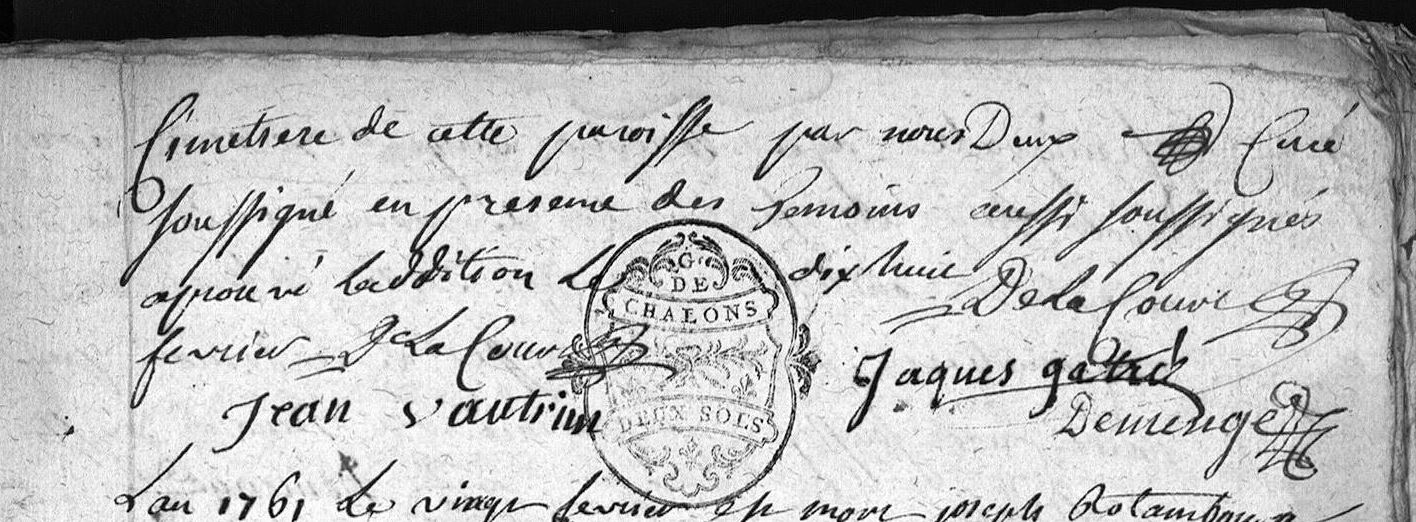 Cimetiere de cette paroisse par nous Deux Curé
soussigné en presence des temoins aussi soussignés
aprouvé laddition Le dix huit
fevrier DeLaCour
DeLaCour
Jean vautrin
Jaques
Demenge
G. DE
CHALONS
DEUX SOLS
Lan 1761 Le vingt fevrier est mort joseph